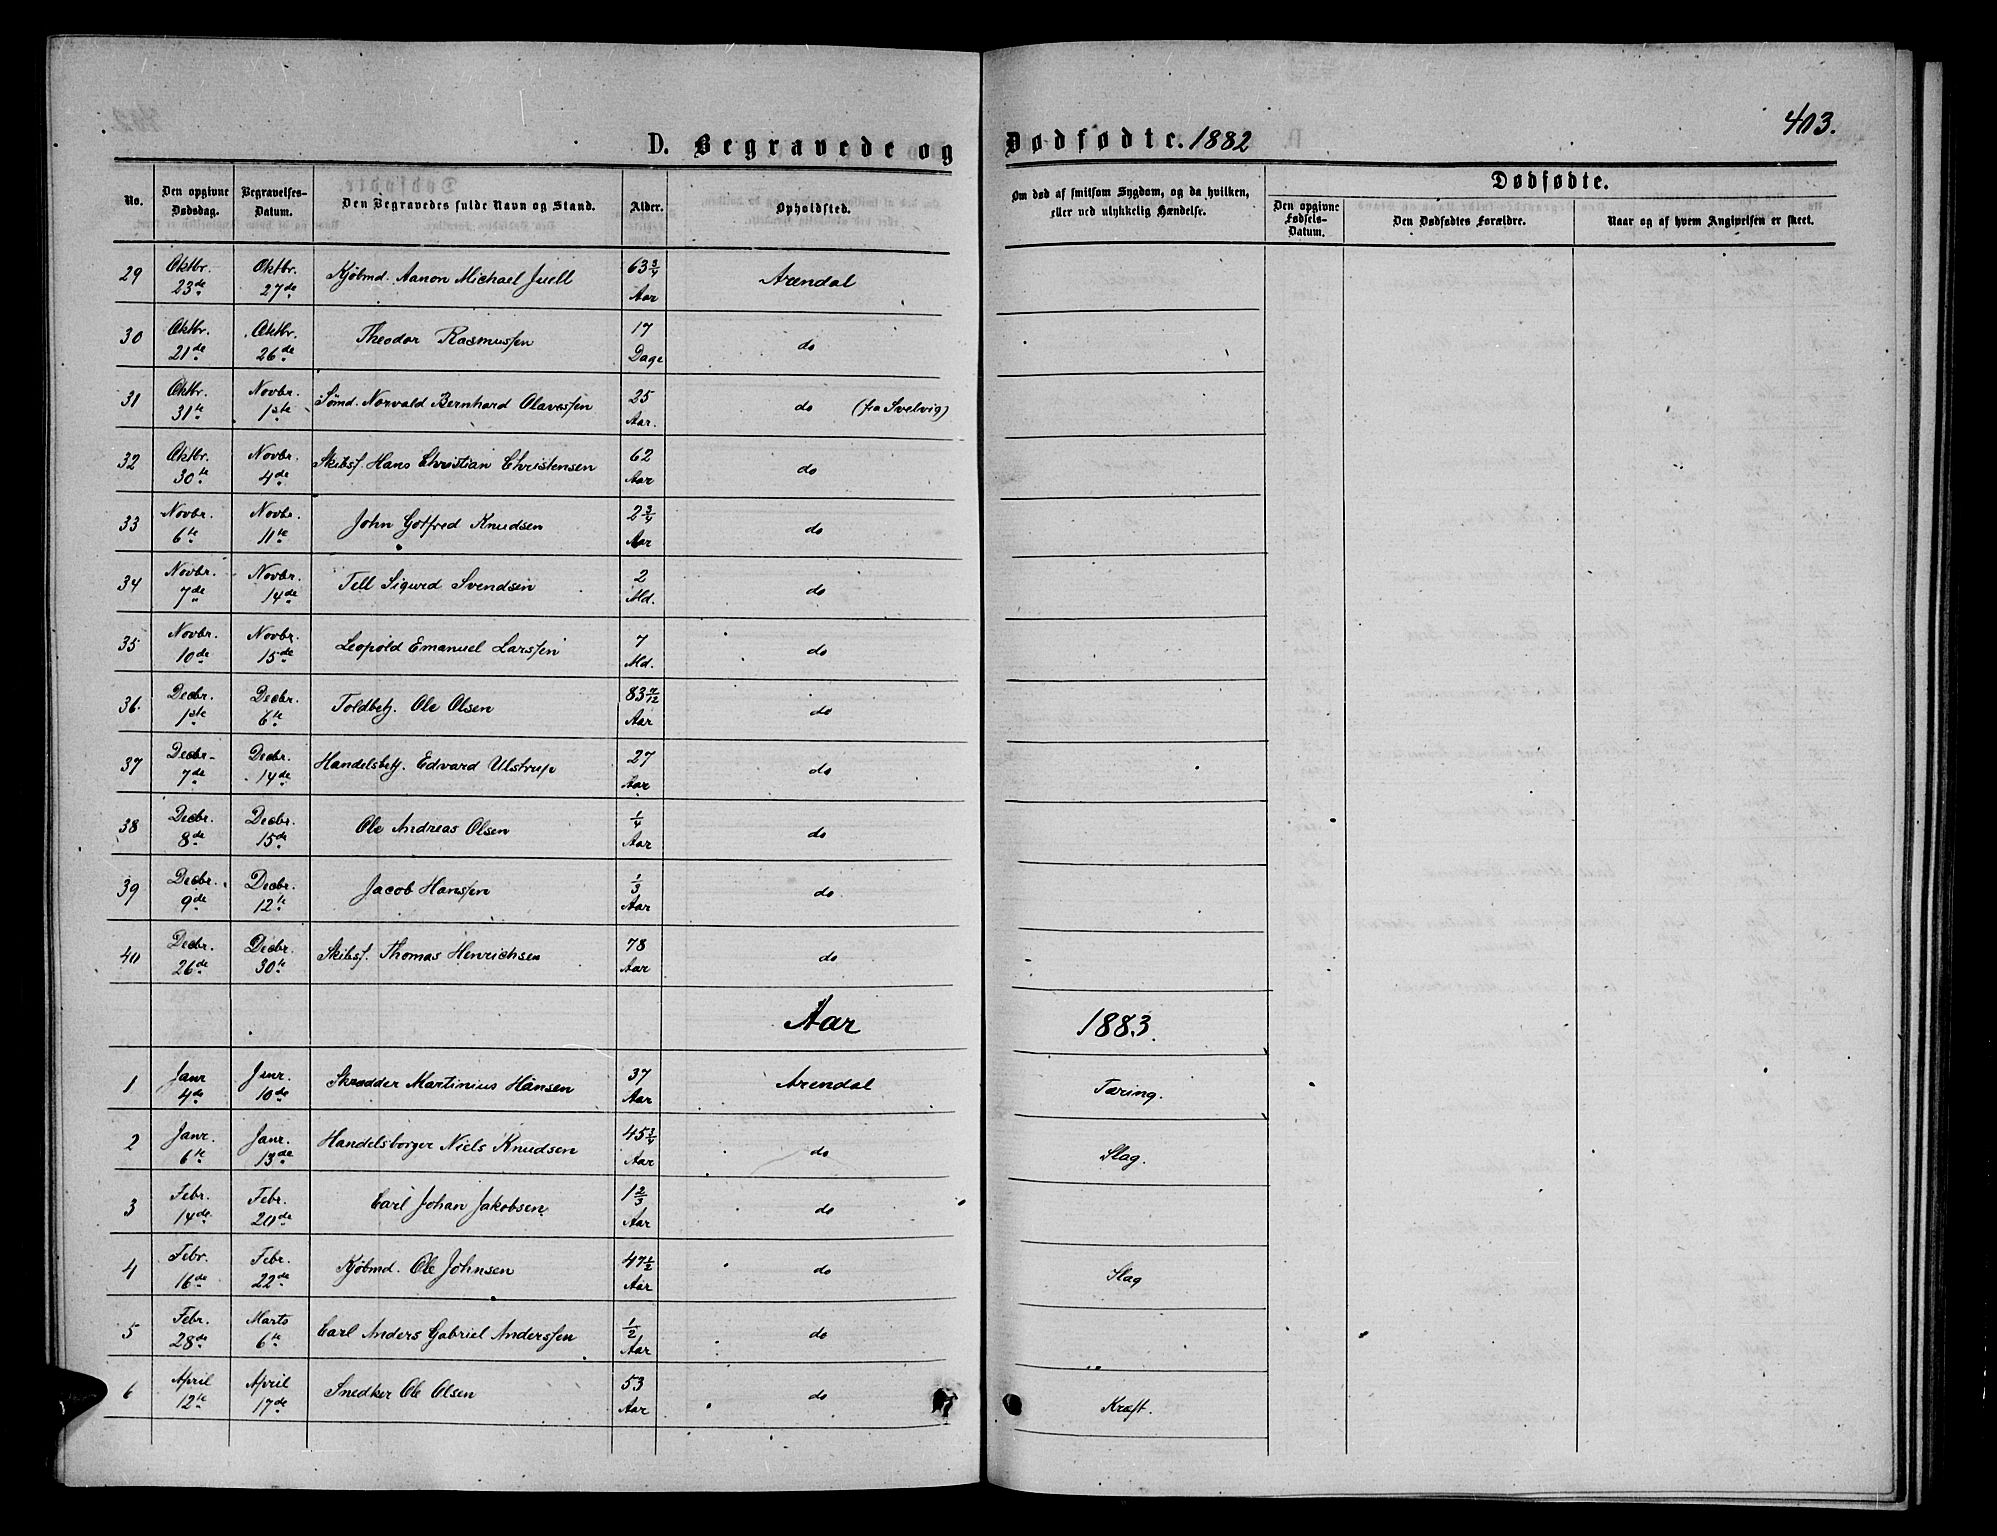 403.
D. Begravede og Dødfødte. 1882
No. | Den opgivne Dødsdag. | Begravelses-Datum. | Den Begravedes fulde Navn og Stand. | Alder. | Opholdssted. | Om død af smitsom Sygdom, og da hvilken, eller ved ulykkelig Hændelse. | Dødfødte. | Den opgivne Fødsels-Datum. | Den Dødfødtes Forældre. | Naar og af hvem Angivelsen er skeet.
29 | Oktbr. 23de | Oktbr. 27de | Kjøbmd. Aanon Michael Juell | 63 3/4 Aar | Arendal
30 | Oktbr. 21de | Oktbr. 26de | Theodor Rasmussen | 17 Dage | do
31 | Oktbr. 31te | Novbr. 1ste | Sømd. Norvald Bernhard Olavessen | 25 Aar. | do (fra Svelvig)
32 | Oktbr. 30te | Novbr. 4de | Skibsf. Hans Christian Christensen | 62 Aar | do
33 | Novbr. 6te | Novbr. 11te | John Gotfred Knudsen | 2 3/4 Aar | do
34 | Novbr. 7de | Novbr. 14de | Tell Sigurd Svendsen | 2 Md. | do
35 | Novbr. 10de | Novbr. 15de | Leopold Emanuel Larssen | 7 Md. | do
36 | Decbr. 1ste | Decbr. 6te | Toldbetj. Ole Olsen | 83 7/12 Aar | do
37 | Decbr. 7de | Decbr. 14de | Handelsbetj. Edvard Ulstrup | 27 Aar | do
38 | Decbr. 8de | Decbr. 15de | Ole Andreas Olsen | 1/4 Aar | do
39 | Decbr. 9de | Decbr. 12te | Jacob Hanssen | 1/3 Aar | do
40 | Decbr. 26de | Decbr. 30te | Skibsf. Thomas Henrichsen | 78 Aar | do
Aar 1883.
1 | Janr 4de | Janr. 10de | Skrædder Martinius Hansen | 37 Aar | Arendal | Tæring.
2 | Janr. 6te | Janr. 13de | Handelsborger Niels Knudsen | 45 3/4 Aar | do | Slag.
3 | Febr. 14de | Febr. 20de | Carl Johan Jakobsen | 1 2/3 Aar | do
4 | Febr. 16de | Febr. 22de | Kjøbmd. Ole Johnsen | 47 1/2 Aar | do | Slag
5 | Febr. 28de | Marts 6te | Carl Anders Gabriel Anderssen | 1/2 Aar | do
6 | April 12te | April 17de | Snedker Ole Olsen | 53 Aar | do | Kræft.